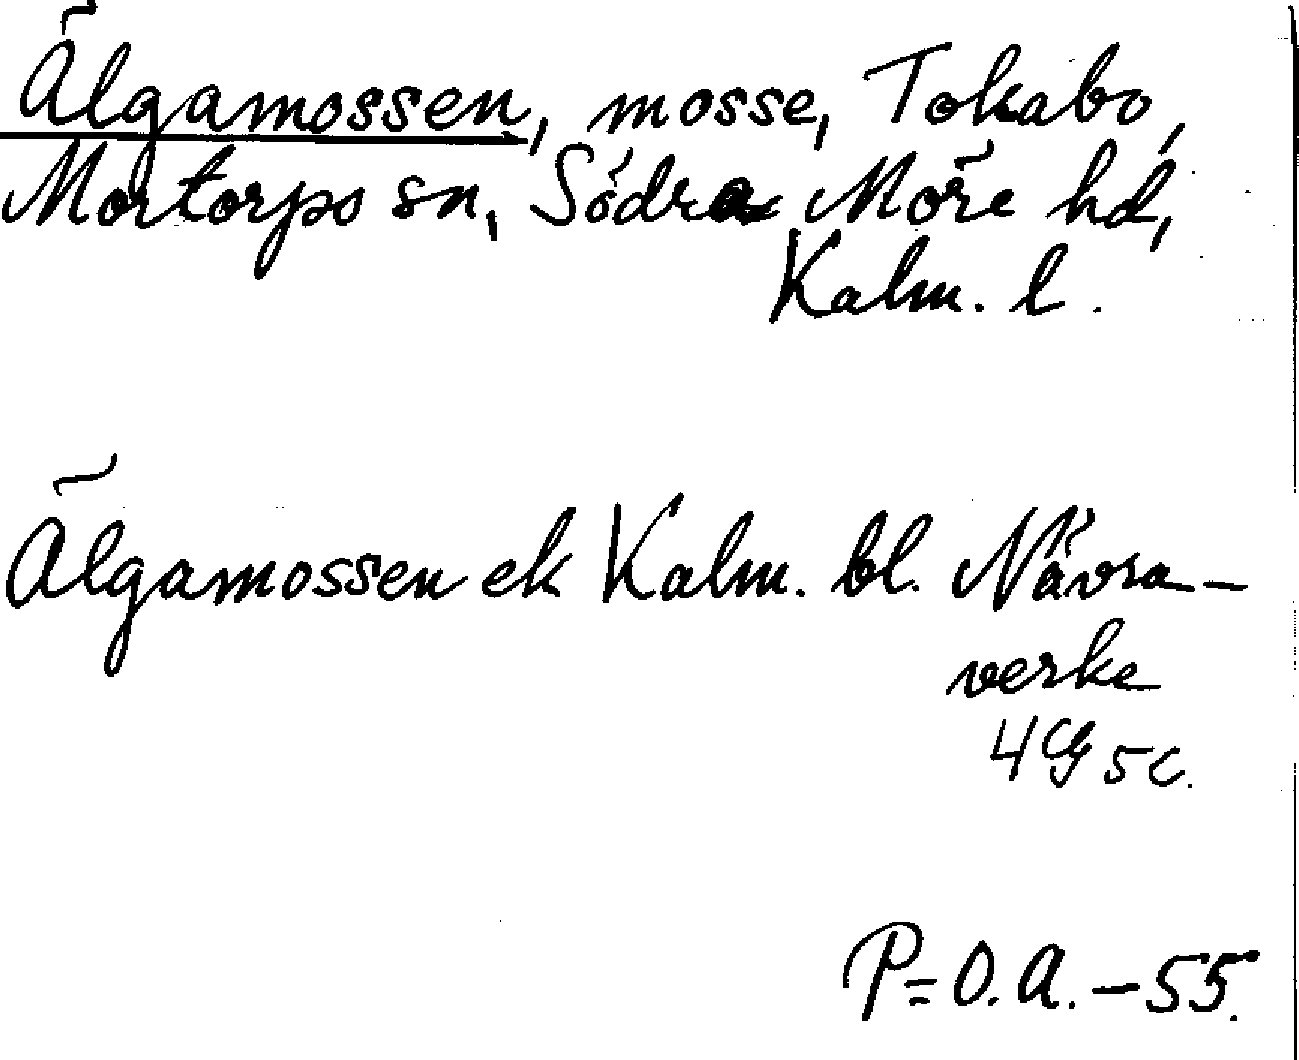 Älgamossen, mosse, Tokabo,
Mortorps sn, Södra Möre hd,
Kalm. l.
Älgamossen ek Kalm. bl. Nävra-
verke
4G 5c.
P=O.A.-55.